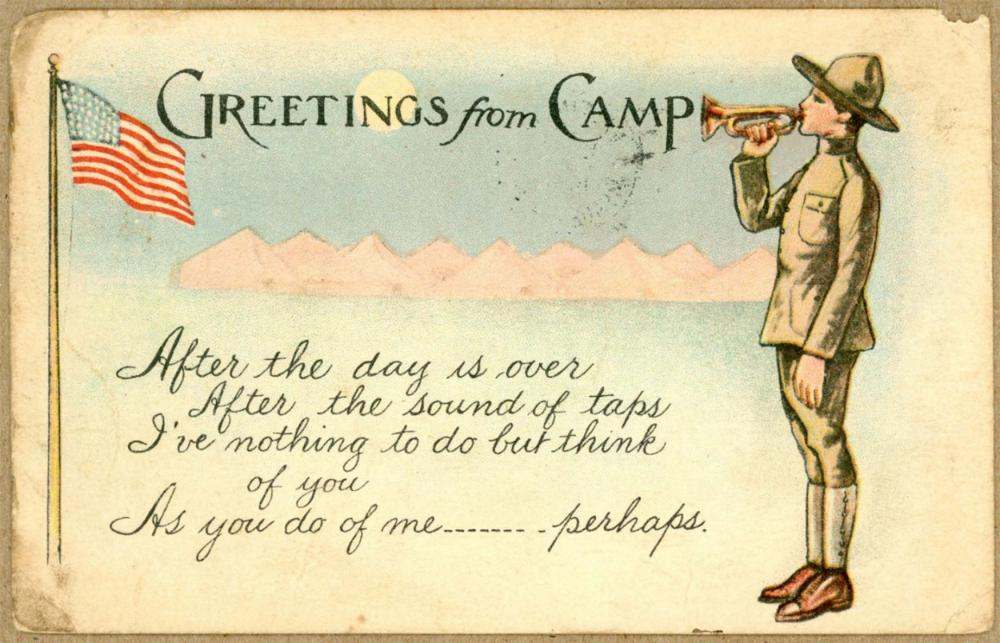 GREETINGS from CAMP
After the day is over
After the sound of taps
I've nothing to do but think
of you
As you do of me------- -perhaps.